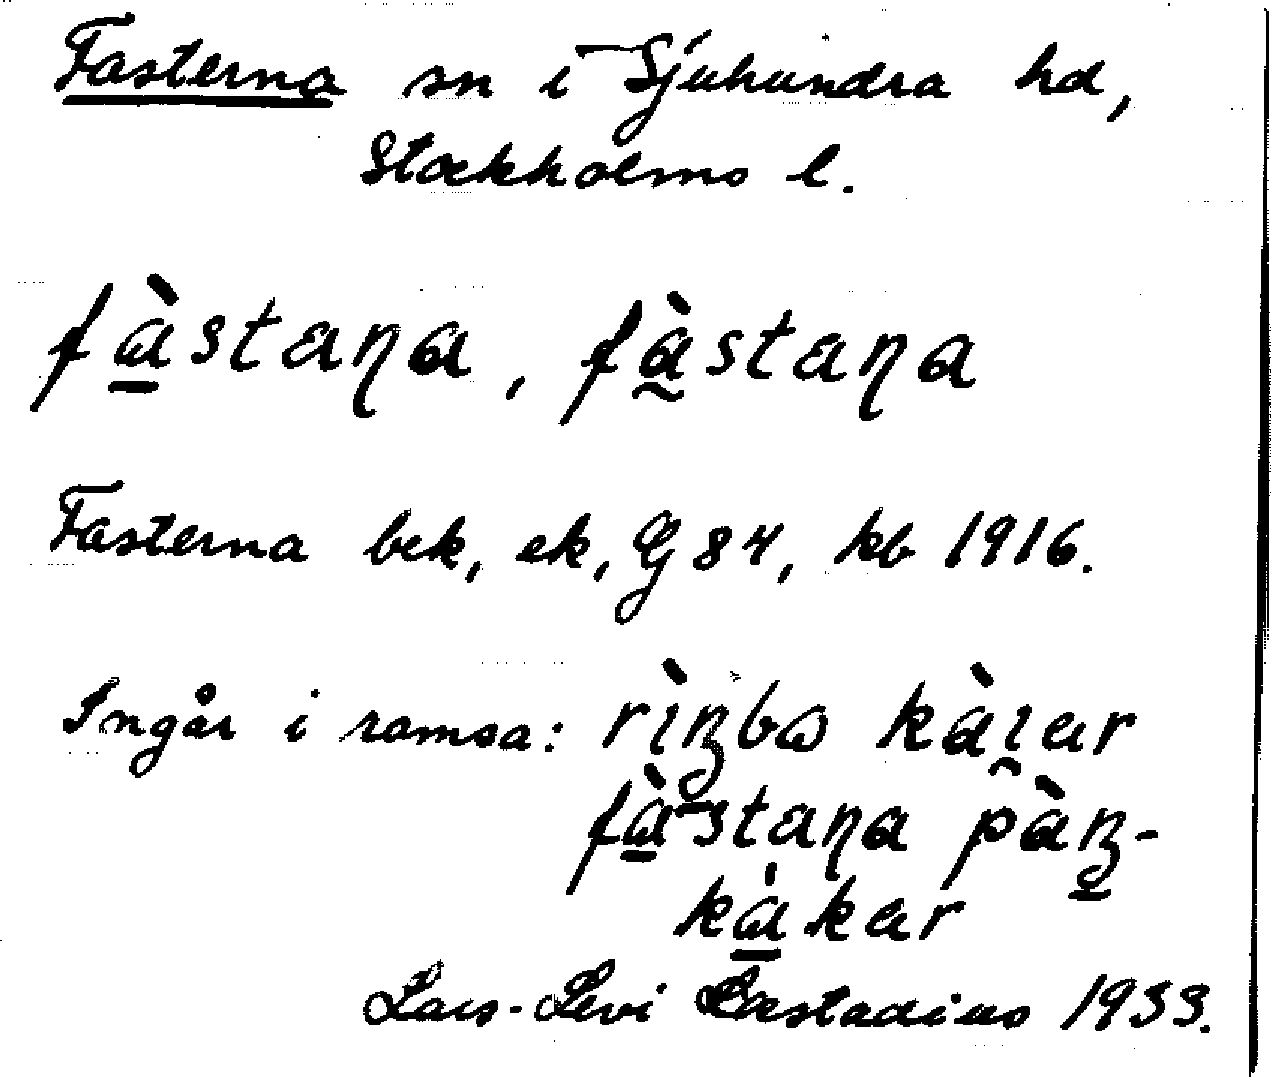 Fasterna sn i Sjuhundra hd,
Stockholms l.
fàstaṇa, fàstaṇa
Fasterna bek, ek, G 84, kb 1916.
Ingår i ramsa:
fàstaṇa
Lars-Levi Læstadius 1933.